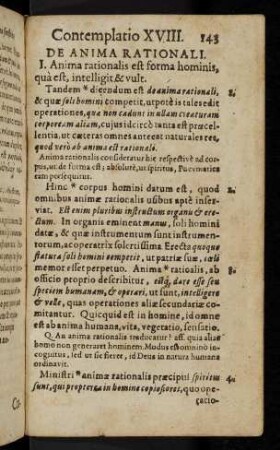 Contemplatio XVIII. 143
DE ANIMA RATIONALI.
I. Anima rationalis est forma hominis,
quà est, intelligit & vult.
Tandem * dicendum est de anima rationali, 2.
& quæ soli homini competit, utpotè is tales edit
operationes, quæ non cadunt in ullam creaturam
corpoream aliam, cujus idcircò tanta est præcel-
lentia, ut cæteras omnes anteeat naturales res,
quod verò ab anima est rationali.
Anima rationalis consideratur hîc respectivè ad cor-
pus, ut de forma est; absolutè, ut spiritus, Pneumatica
eam persequitur.
Hinc * corpus homini datum est, quod 2.
omnibus animæ rationalis usibus aptè inser-
viat. Est enim pluribus instructum organis & ere-
ctum. In organis eminent manus, soli homini
datæ, & quæ instrumentum sunt instrumen-
torum, ac operatrix solertissima Erecta quóque
statura soli homini competit, ut patriæ suæ, cœli
memor esset perpetuò. Anima * rationalis, ab 3.
officio proprio describitur, estq́; dare esse seu
speciem humanam, & operari, ut sunt, intelligere
& velle, quas operationes aliæ secundariæ co-
mitantur. Quicquid est in homine, id omne
est ab anima humana, vita, vegetatio, sensatio.
Q. An anima rationalis traducatur? aff. quia aliàs
homo non generaret hominem. Modus est nobis in-
cognitus, sed ut sic fieret, id Deus in natura humana
ordinavit.
Ministri * animæ rationalis præcipui spiritus 4.
sunt, qui propterea in homine copiosiores, quò ope-
ratio-